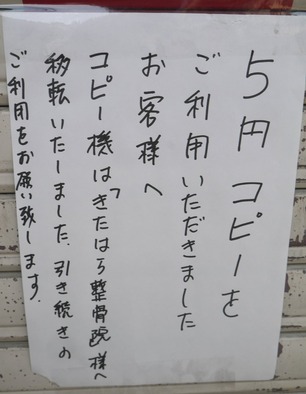 5円コピーを
ご利用いただきました
お客様へ
コピー機は「きたはら整骨院様へ
移転いたしました、引き続きの
ご利用をお願い致します。